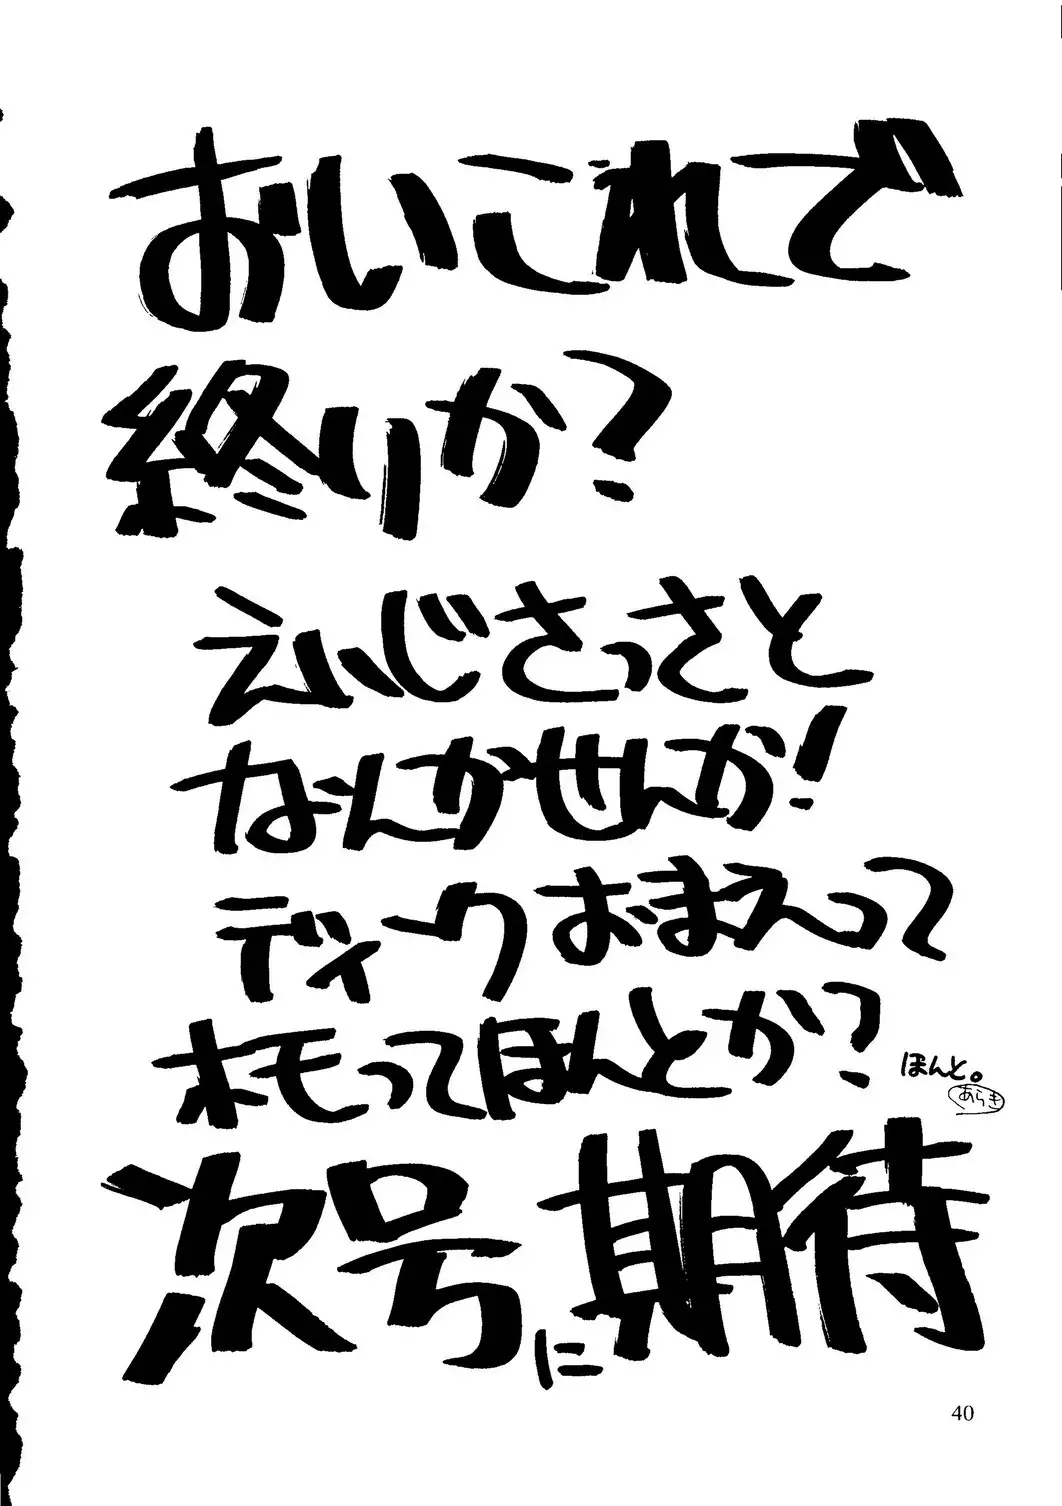 おいこれで
終りか?
えいじさっさと
なんかせんか!
ディークおまえって
ホモってほんとか?
ほんと。
あらき
次号に期待
40